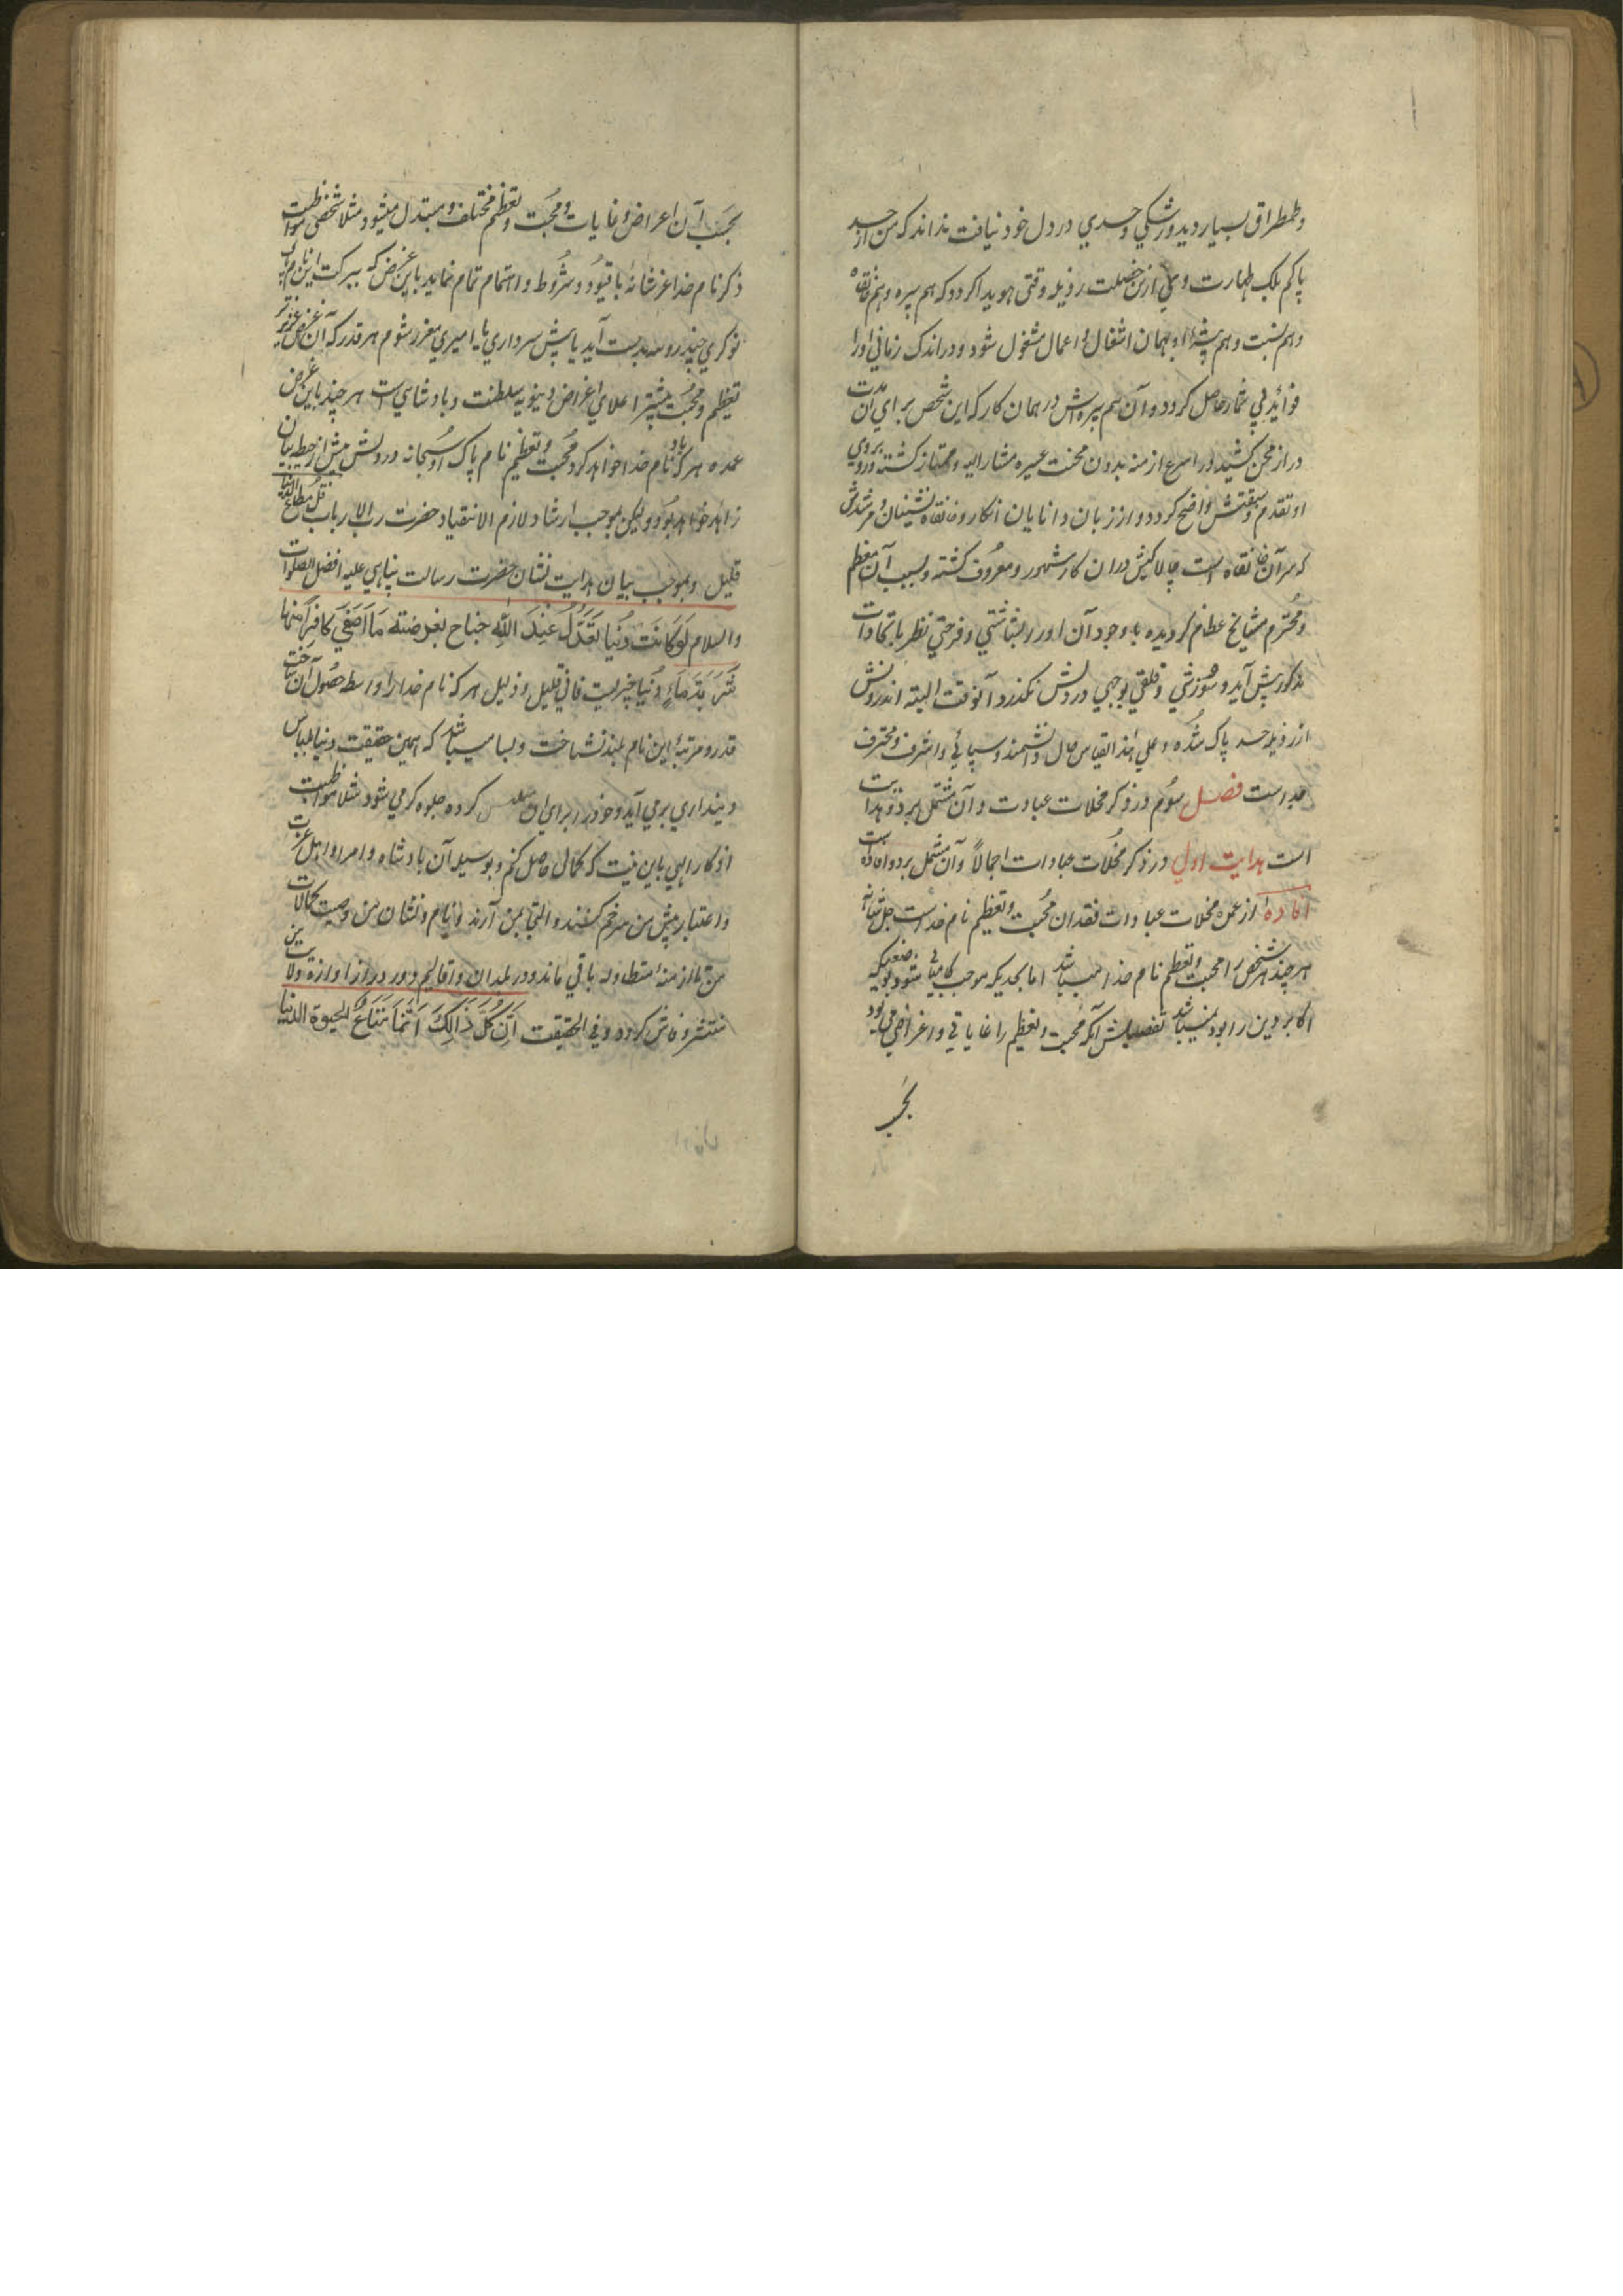 وطمطراق بسیار دید و رشکي و حسدي در دل خود نیافت نداند که من از حسد
پاکم بلکه طهارت وي ازین خصلت رذیله وقتی هویدا کردد که هم پیره و هم خانقاه
و هم نسبت و هم پیشهٔ او بهمان اشغال و اعمال مشغول شود و در اندک زماني او را
فوائد بی شمار حاصل کردد و آن هم پیره اش در همان کار که این شخص براي آن مدت
دراز محن کشیده در اسرع ازمنه بدون محنت عسیره مشار الیه و ممتاز کشته و بروي
او تقدم و سبقتش واضح کردد و از زبان دانایان انکار و خانقاه نشینان و مرشدش
که سر آن خانقاه است چالاکیش در ان کار مشهور و معروف کشته و بسبب آن معظم
و محترم مشایخ عظام کردیده با وجود آن او را بشاشتي و فرحتي نظر باتحادات
مذکور پیش آید و سوزشي و قلقي بوجهي در دلش نکذرد آنوقت البته اندرونش
از رذیله حسد پاک شده و علي هذا القیاس حال دانشمند و سپاهي و اشرف و محترف
جد است فصل سوم در ذکر مخلات عبادت و آن مشتمل بر دو هدایت
است هدایت اولي در ذکر مخلات عبادات اجمالاً و آن مشتمل بر دو افاده است
افاده از عمده مخلات عبادات فقدان محبت و تعظیم نام خداست جل شانه
هر چند هر شخص را محبت و تعظیم نام خدا میباشد اما بحدیکه موجب کامیابي شود بوضعیکه
اکابر دین را بود نمیباشد تفصیلش آنکه محبت و تعظیم را غایاتي و اغراضي مي بود
بحسب
بحسب آن اغراض و غایات و محبت و تعظیم مختلف و متبدل میشود مثلا شخصی مواظبت
ذکر نام خدا عز شانه با قیود و شروط و اهتمام تمام نماید باین غرض که ببرکت این نام پاک
نوکري چند روپیه بدست آید یا پیش سرداري یا امیري معزز شوم هر قدر که آن غرض عزیزتر
تعظیم و محبت بیشتر اعلاي اغراض دنیویه سلطنت و بادشاهي است هر چند باین غرض
عمده هر که یاد نام خدا خواهد کرد محبت و تعظیم نام پاک او سبحانه در دلش بیش از حیطه بیان
زائد خواهد بود و لیکن بموجب ارشاد لازم الانقیاد حضرت رب الارباب قل متاع الدنیا
قلیل و بموجب بیان هدایت نشان حضرت رسالت پناهي علیه افضل الصلوات
والسلام لو کانت دنیا تعدل عند الله جناح بعوضة ما اصفی کافرا منها
شربة ماء دنیا چیزیست فاني قلیل و ذلیل هر که نام خدا را واسطه حصول آن ساخت
قدر و مرتبهٔ این نام بلند نشناخت و بسا میباشد که همین حقیقت دنیا بلباس
دینداري برمي آید و خود را براي کرده جلوه کر مي شود مثلا مواظبت
اذکار الهي باین نیت که کمالی حاصل کنم و بوسیله آن بادشاه و امرا و اهل عزت
و اعتبار پیش من سر خم کنند و التجا بمن آرند و نام و نشان من و صیت کمالات
من تا ازمنه متطاوله باقي ماند و در بلدان و اقالیم دور دراز اوازه ولایت من
منتشر و فاش کردد و في الحقیقت ان کل ذالک انما متاع الحیوة الدنیا